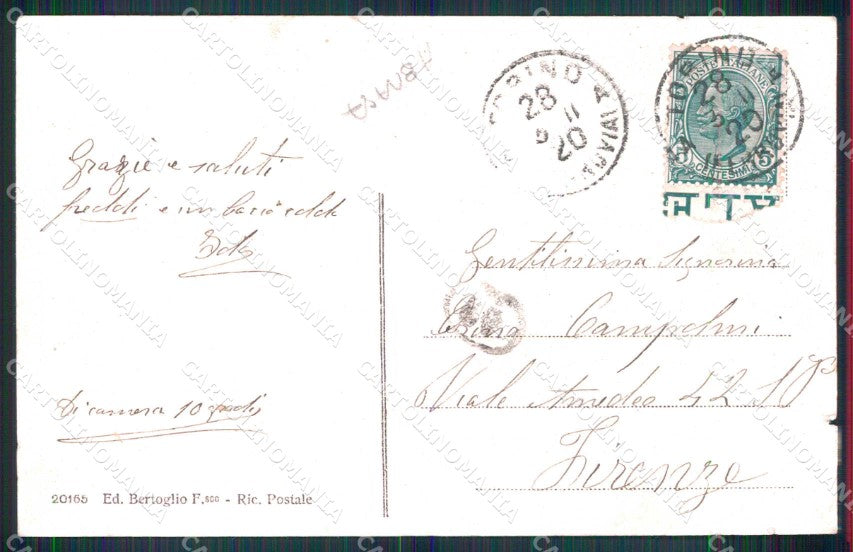 TORINO
28
11
20
TORINO
28
11
20
POSTE ITALIANE
5 CENTESIMI 5
Grazie e saluti
freddi e un bacio caldo
Gentilissima Signorina
Campolmi
Viale Amedeo 22 10
Firenze
Di camera 10 gradi
20165 Ed. Bertoglio F.sco - Ric. Postale
CARTOLINOMANIA